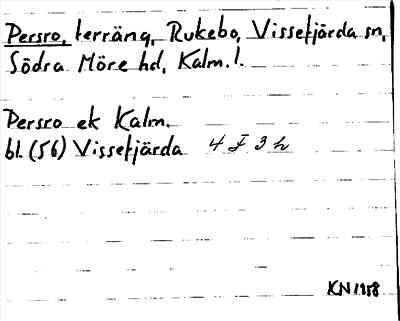 Persro, terräng, Rukebo, Vissefjärda sn,
Södra Möre hd, Kalm. l.
Persro ek Kalm.
bl. (56) Vissefjärda 4 F 3 h
KN 1958